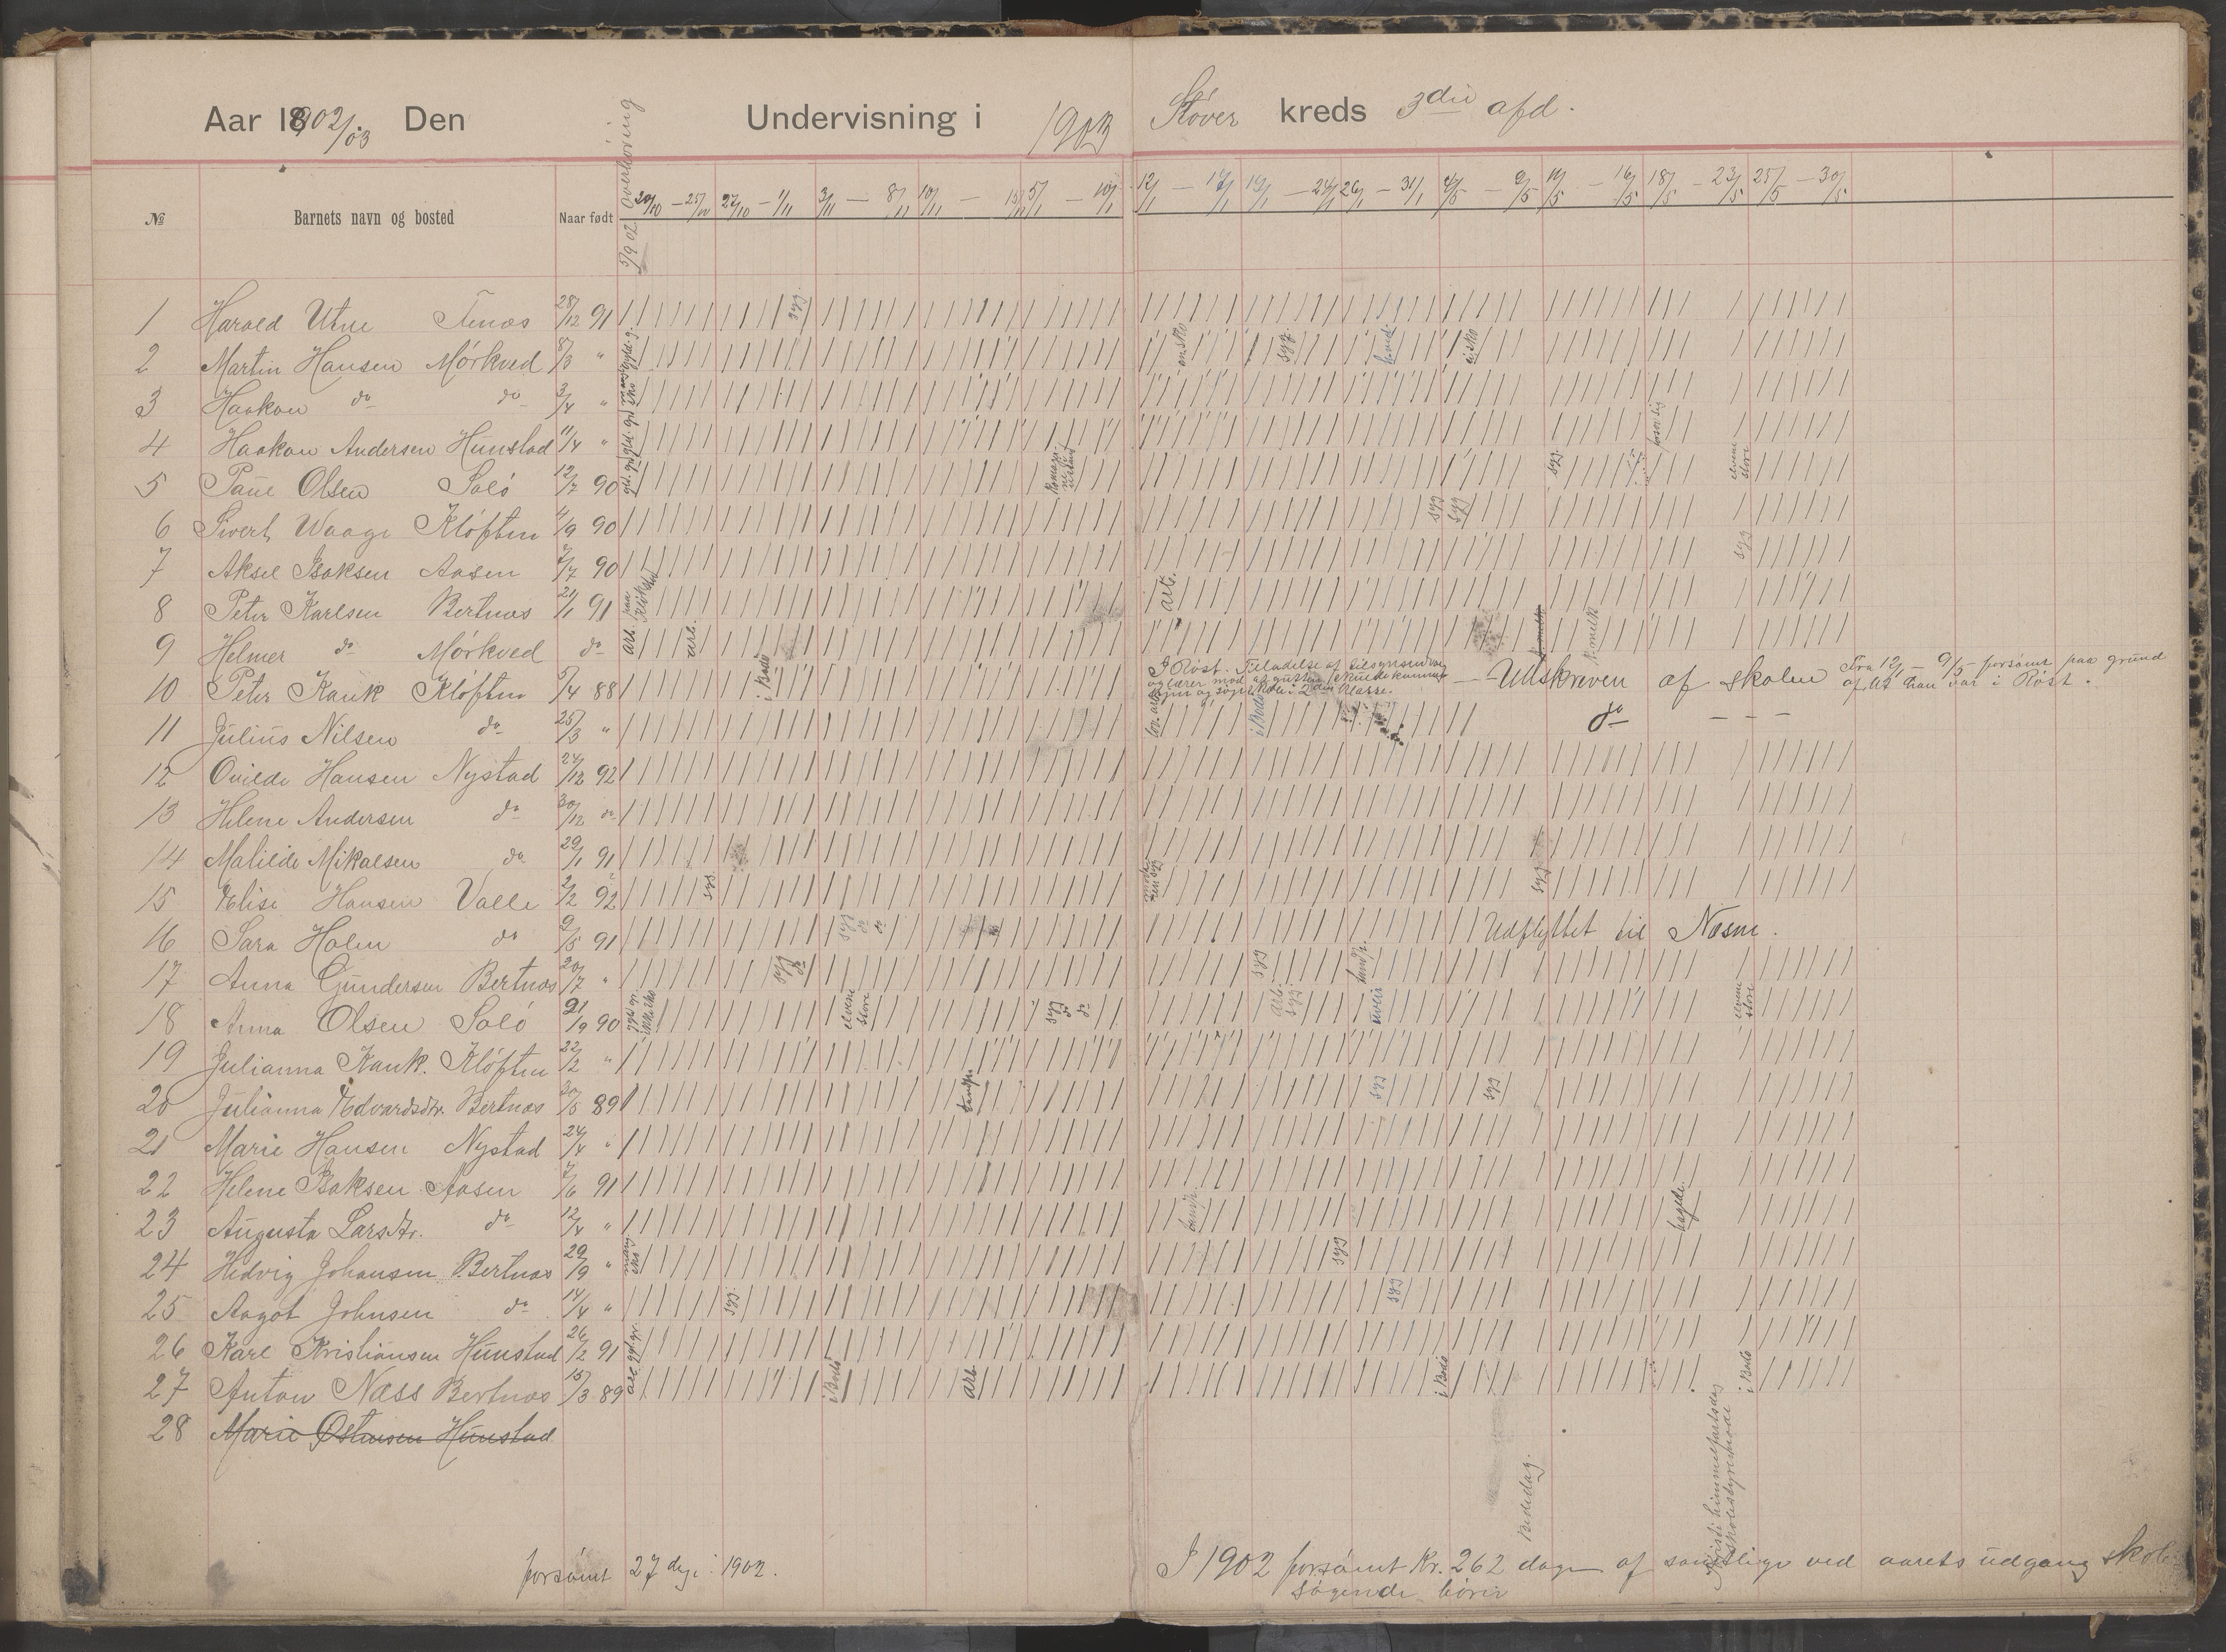 Aar 1902/03 Den Undervisning i 1903 Støver kreds 3die afd.
5/9 02 Overhøring
№ Barnets navn og bosted Naar født 20/10 — 25/10 27/10 — 1/11 3/11 — 8/11 10/11 — 15/11 5/1 — 10/1 12/1 — 17/1 19/1 — 24/1 26/1 — 31/1 4/5 — 9/5 11/5 — 16/5 18/5 — 23/5 25/5 — 30/5
1 Harold Utne 28/12 91 syg.
2 Martin Hansen Mørkved 8/3 " syg.
3 Haakon do do 3/4 "
4 Haakon Andersen Hunstad 11/4 "
5 Paul Olsen Solø 12/7 90 syg. elvene store
6 Sivert Waage Kløften 4/9 90 syg syg
7 Aksel Isaksen Aasen 7/7 90 syg
8 Peter Karlsen Bertnæs 21/1 91 arb.
9 Helmer do Mørkved do arb. arb.
10 Peter Kank Kløften 5/4 88 i Bodø I Røst. — Udskreven af skolen Fra 12/1 — 9/5 forsømt paa grund af at han var i Røst.
11 Julius Nilsen do 25/3 " i Bodø do — — —
12 Ovilde Hansen Nystad 24/12 92
13 Helene Andersen do 30/12 do
14 Matilde Mikalsen do 29/1 91
15 Elise Hansen Valle 2/2 92 syg. syg
16 Sara Holm do 9/5 91 syg do do Udflyttet til Næsne.
17 Anna Gundersen Bertnæs 20/7 " syg do syg
18 Anna Olsen Solø 21/9 90 elvene store syg do do arb. syg uveir elvene store
19 Julianna Kank. Kløften 22/2 "
20 Julianna Edvardsdtr. Bertnæs 30/5 89 tandp. syg syg
21 Marie Hansen Nystad 24/4
22 Helene Isaksen Aasen 7/6 91
23 Augusta Larsdtr. do 12/4 " tandp.
24 Hedvig Johansen Bertnæs 29/9 " mang. sko syg
25 Aagot Johnsen do 14/4 " syg. syg
26 Karl Kristiansen Hunstad 26/2 91
27 Anton Næss Bertnæs 15/3 89 i Bodø arb i Bodø i Bodø
28 Marie Østensen Hunstad
Bededag.
Kristi himmelfartsdag
skolestyremøde
forsømt 27 dage i 1902.
I 1902 forsømt Kr. 262 dage af samtlige ved aarets udgang skole-
søgende børn